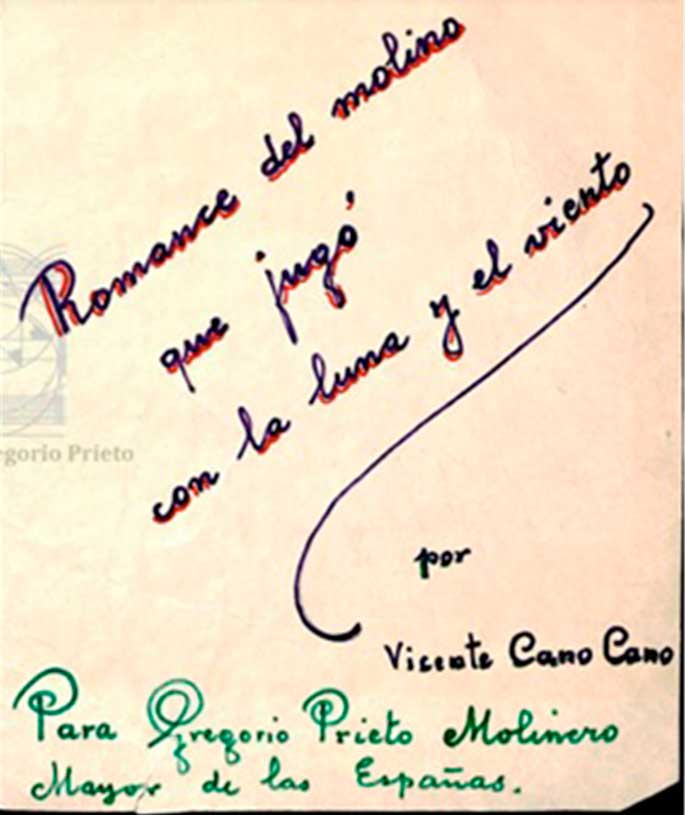 Romance del molino
que jugó
con la luna y el viento
egorio Prieto
por
Vicente Cano Cano
Para Gregorio Prieto Molinero
Mayor de las Españas.